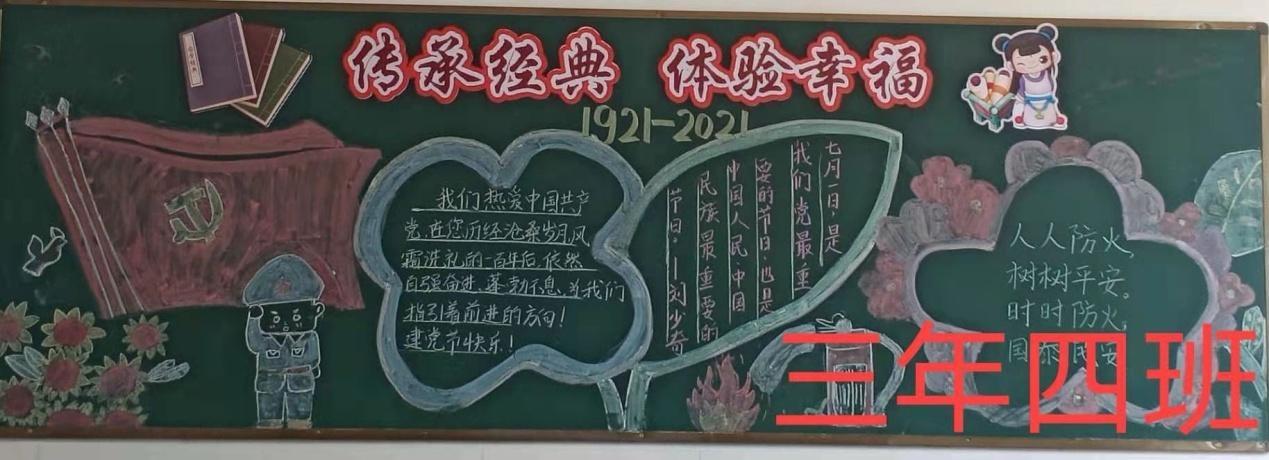 传承经典 体验幸福
1921-2021
我们热爱中国共产
党,在您历经沧桑岁月风
霜洗礼的一百年后,依然
自强奋进、蓬勃不息,为我们
指引着前进的方向!
建党节快乐!
七月一日,是
我们党最重
要的节日,也是
中国人民、中国
民族最重要的
节日。—刘少奇
人人防火,
树树平安。
时时防火,
国泰民安
三年四班